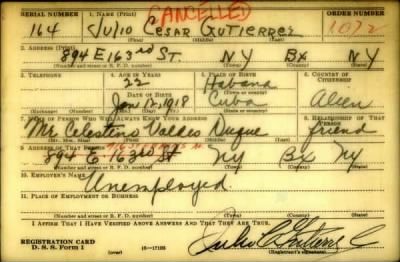 CANCELLED
SERIAL NUMBER 1. NAME (Print) ORDER NUMBER
164 Julio Cesar Gutierrez 1072
(First) (Middle) (Last)
2. ADDRESS (Print)
894 E 163rd ST. NY Bx NY
(Number and street or R. F. D. number) (Town) (County) (State)
3. TELEPHONE 4. AGE IN YEARS 5. PLACE OF BIRTH 6. COUNTRY OF CITIZENSHIP
22 Habana
DATE OF BIRTH (Town or county)
Jan 12, 1918 Cuba Alien
(Exchange) (No.) (Mo.) (Day) (Yr.) (State or country)
7. NAME OF PERSON WHO WILL ALWAYS KNOW YOUR ADDRESS 8. RELATIONSHIP OF THAT PERSON
Mr. Celestino Valdes Duque friend
(Mr., Mrs., Miss) (First) (Middle) (Last)
9. ADDRESS OF THAT PERSON
894 E 163rd St NY Bx NY
(Number and street or R. F. D. number) (Town) (County) (State)
10. EMPLOYER'S NAME
Unemployed
11. PLACE OF EMPLOYMENT OR BUSINESS
(Number and street or R. F. D. number) (Town) (County) (State)
I AFFIRM THAT I HAVE VERIFIED ABOVE ANSWERS AND THAT THEY ARE TRUE.
REGISTRATION CARD
D. S. S. Form 1 (over) 16—17105
Julio C Gutierrez
(Registrant's signature)